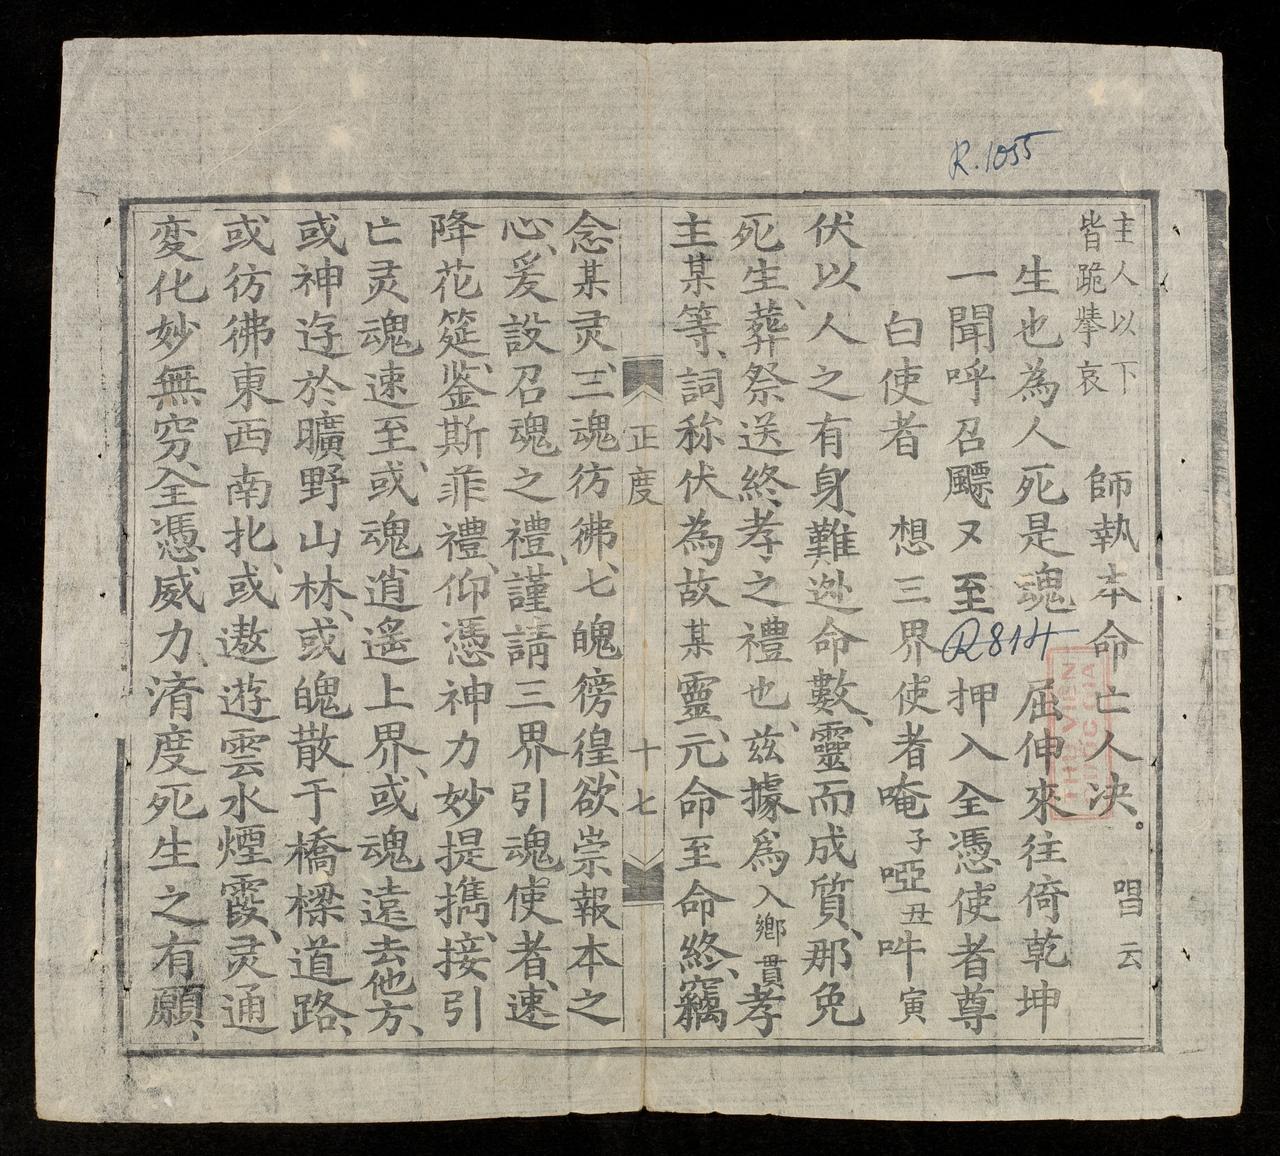 R.1055
主人以下皆跪擧哀 師執本命亡人决。唱云
生也為人死是魂 屈伸來往倚乾坤
一聞呼召飄又至 押入全憑使者尊
R814
白使者 想三界使者唵子啞丑吽寅
伏以人之有身、難迯命數、靈而成質、那免
死生、葬祭送終、孝之禮也、兹據爲入鄉貫孝
主某等、詞称伏為故某靈、元命至命終、竊
正度 十七
念某灵、三魂彷彿、七魄徬徨、欲崇報本之
心、爰設召魂之禮、謹請三界引魂使者、速
降花筵、鉴斯菲禮、仰憑神力妙提擕、接引
亡灵魂速至、或魂逍遥上界、或魂遠去他方、
或神迋於曠野山林、或魄散于橋樑道路、
或彷彿東西南北、或遨遊雲水煙霞、灵通
変化妙無穷、全憑威力、済度死生之有願、